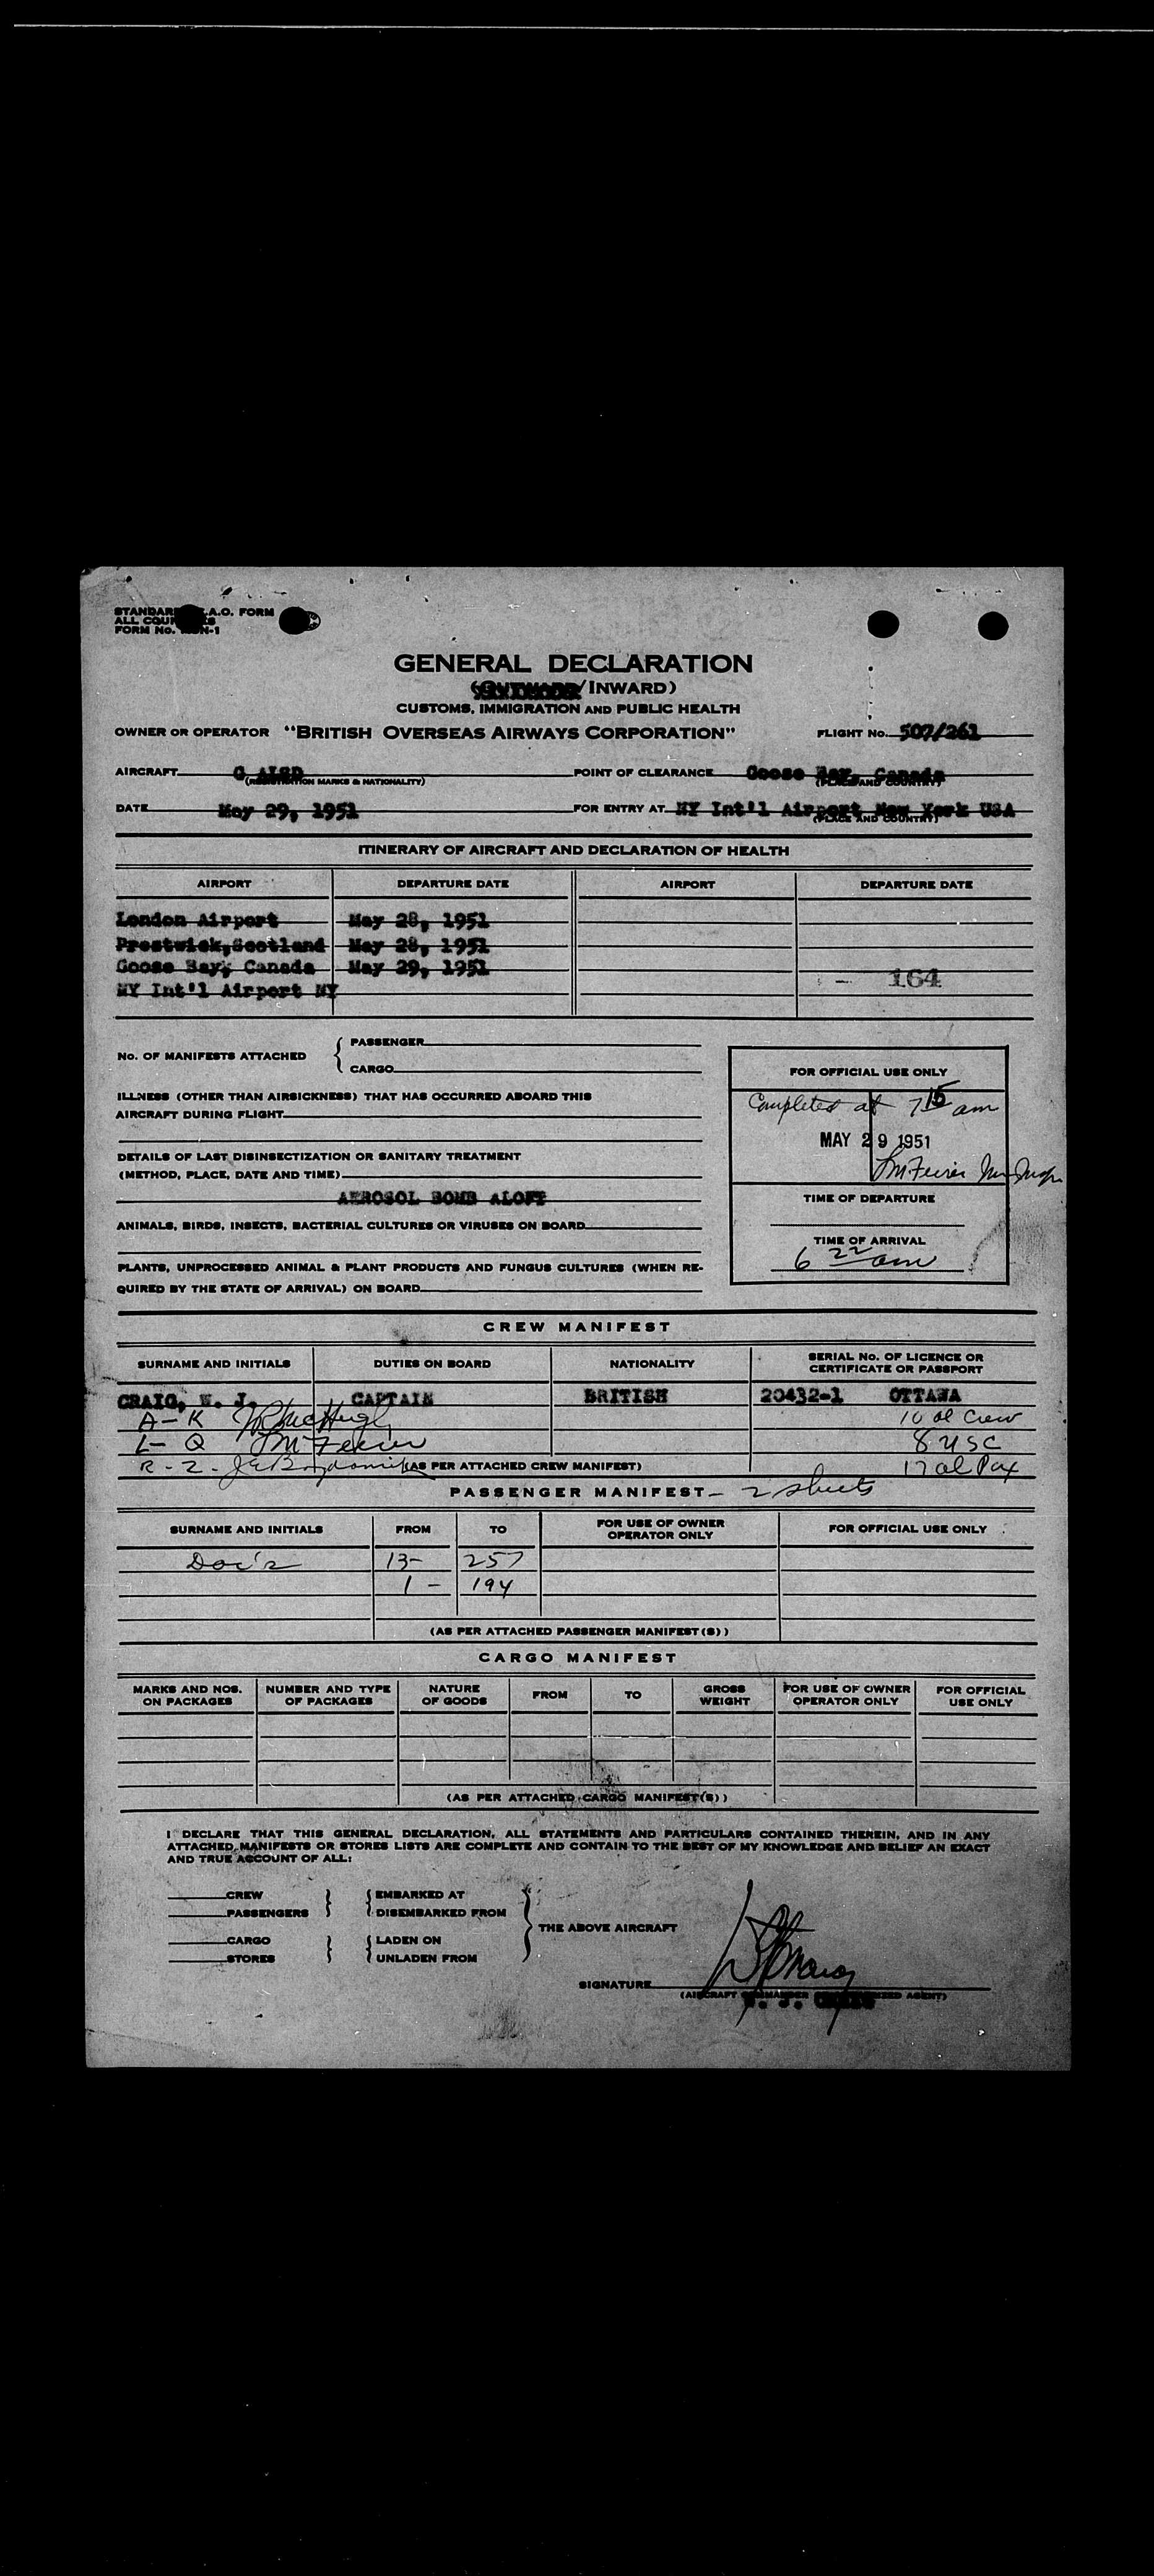 STANDAR A.O. FORM
ALL COU S
FORM No. N-1
GENERAL DECLARATION
/INWARD)
CUSTOMS, IMMIGRATION AND PUBLIC HEALTH
OWNER OR OPERATOR "BRITISH OVERSEAS AIRWAYS CORPORATION" FLIGHT No. 507/261
AIRCRAFT G POINT OF CLEARANCE Goose Bay, Canada
(REGISTRATION MARKS & NATIONALITY) (PLACE AND COUNTRY)
DATE May 29, 1951 FOR ENTRY AT NY Int'l Airport New York USA
(PLACE AND COUNTRY)
ITINERARY OF AIRCRAFT AND DECLARATION OF HEALTH
AIRPORT DEPARTURE DATE AIRPORT DEPARTURE DATE
London Airport May 28, 1951
Prestwick,Scotland May 28, 1951
Goose Bay, Canada May 29, 1951
- 164
NY Int'l Airport NY
No. OF MANIFESTS ATTACHED { PASSENGER
CARGO
ILLNESS (OTHER THAN AIRSICKNESS) THAT HAS OCCURRED ABOARD THIS
AIRCRAFT DURING FLIGHT
DETAILS OF LAST DISINSECTIZATION OR SANITARY TREATMENT
(METHOD, PLACE, DATE AND TIME)
AEROSOL BOMB ALOFT
ANIMALS, BIRDS, INSECTS, BACTERIAL CULTURES OR VIRUSES ON BOARD
PLANTS, UNPROCESSED ANIMAL & PLANT PRODUCTS AND FUNGUS CULTURES (WHEN RE-
QUIRED BY THE STATE OF ARRIVAL) ON BOARD
FOR OFFICIAL USE ONLY
Completed at 7 15 am
MAY 29 1951
TIME OF DEPARTURE
TIME OF ARRIVAL
6 22 am
CREW MANIFEST
SURNAME AND INITIALS DUTIES ON BOARD NATIONALITY SERIAL No. OF LICENCE OR
CERTIFICATE OR PASSPORT
CRAIG, W. J. CAPTAIN BRITISH 20432-1 OTTAWA
A-K 10 al Crew
L-Q 8 USC
R-Z- (AS PER ATTACHED CREW MANIFEST) 17 al Pax
PASSENGER MANIFEST - 2 sheets
SURNAME AND INITIALS FROM TO FOR USE OF OWNER
OPERATOR ONLY FOR OFFICIAL USE ONLY
Doc's 13- 257
1 - 194
(AS PER ATTACHED PASSENGER MANIFEST(S))
CARGO MANIFEST
MARKS AND NOS.
ON PACKAGES NUMBER AND TYPE
OF PACKAGES NATURE
OF GOODS FROM TO GROSS
WEIGHT FOR USE OF OWNER
OPERATOR ONLY FOR OFFICIAL
USE ONLY
(AS PER ATTACHED CARGO MANIFEST(S))
I DECLARE THAT THIS GENERAL DECLARATION, ALL STATEMENTS AND PARTICULARS CONTAINED THEREIN, AND IN ANY
ATTACHED MANIFESTS OR STORES LISTS ARE COMPLETE AND CONTAIN TO THE BEST OF MY KNOWLEDGE AND BELIEF AN EXACT
AND TRUE ACCOUNT OF ALL:
CREW } { EMBARKED AT
PASSENGERS DISEMBARKED FROM
} THE ABOVE AIRCRAFT
CARGO } { LADEN ON
STORES UNLADEN FROM
SIGNATURE
(AIRCRAFT COMMANDER AUTHORIZED AGENT)
W. J. CRAIG